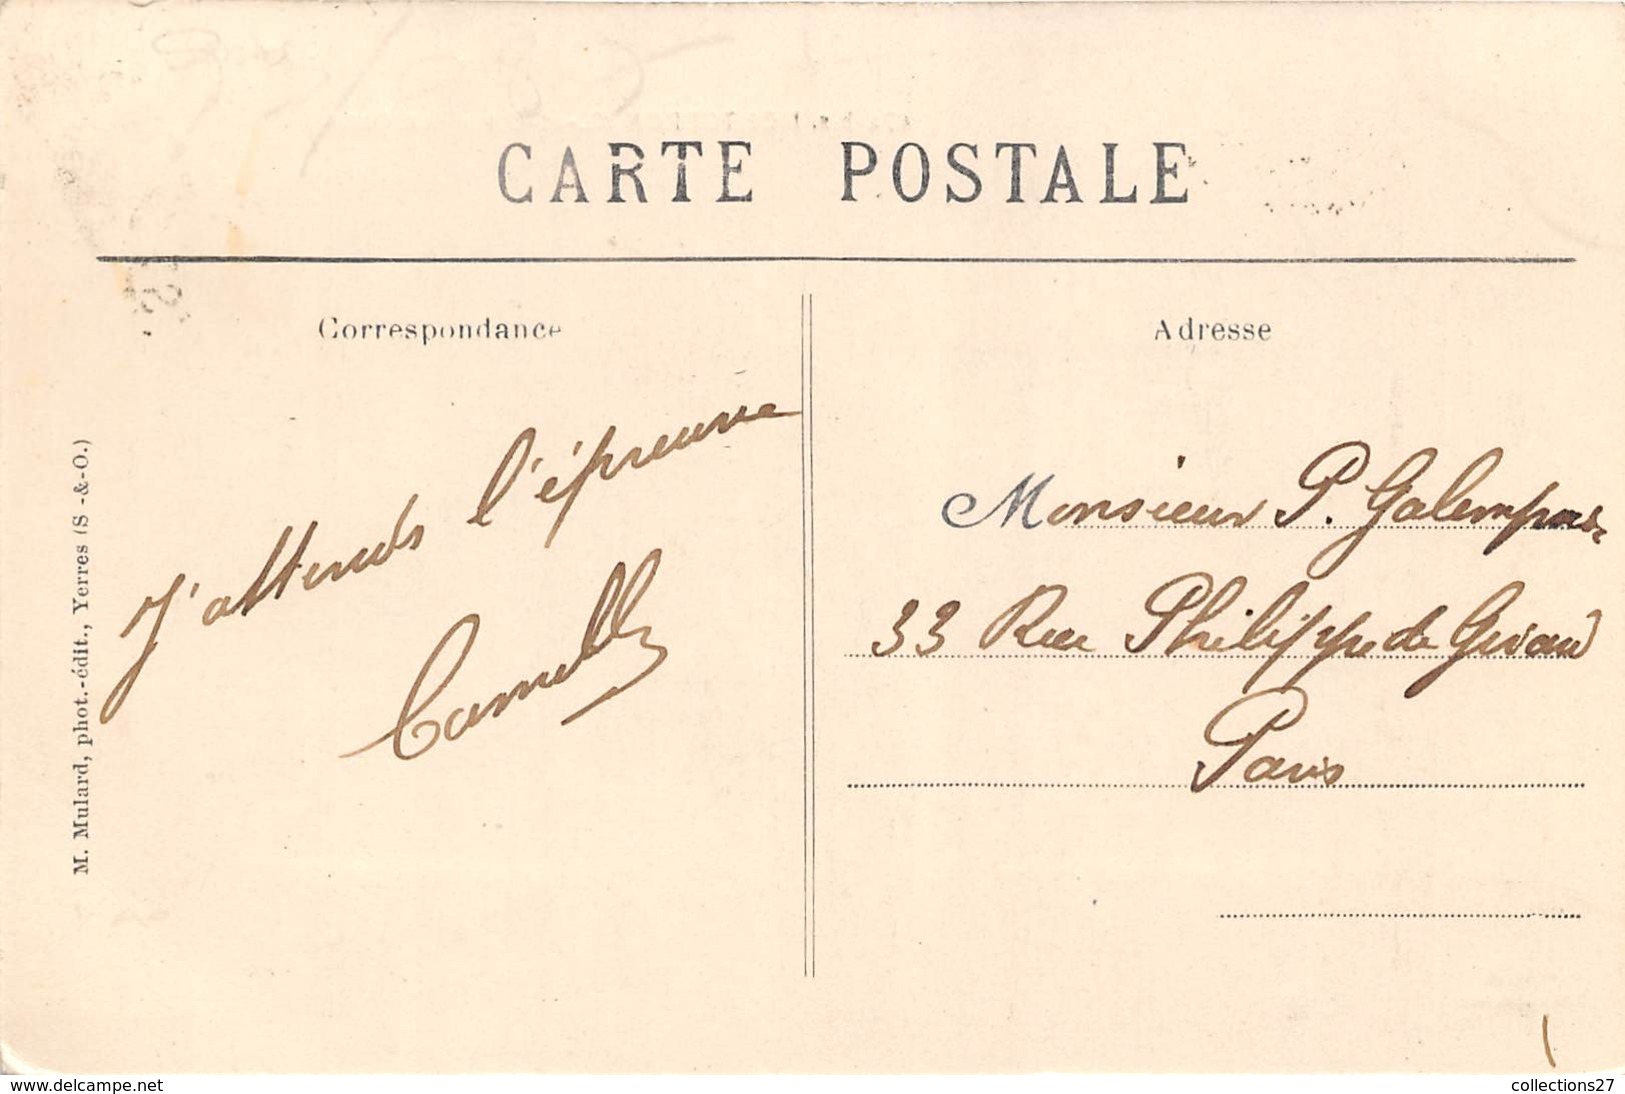 CARTE POSTALE
Correspondance
Adresse
J'attends l'épreuve
Camille
Monsieur P.
33 Rue Philippe de Girard
Paris
M. Mulard, phot.-édit., Yerres (S -&-O.)
www.delcampe.net
collections27